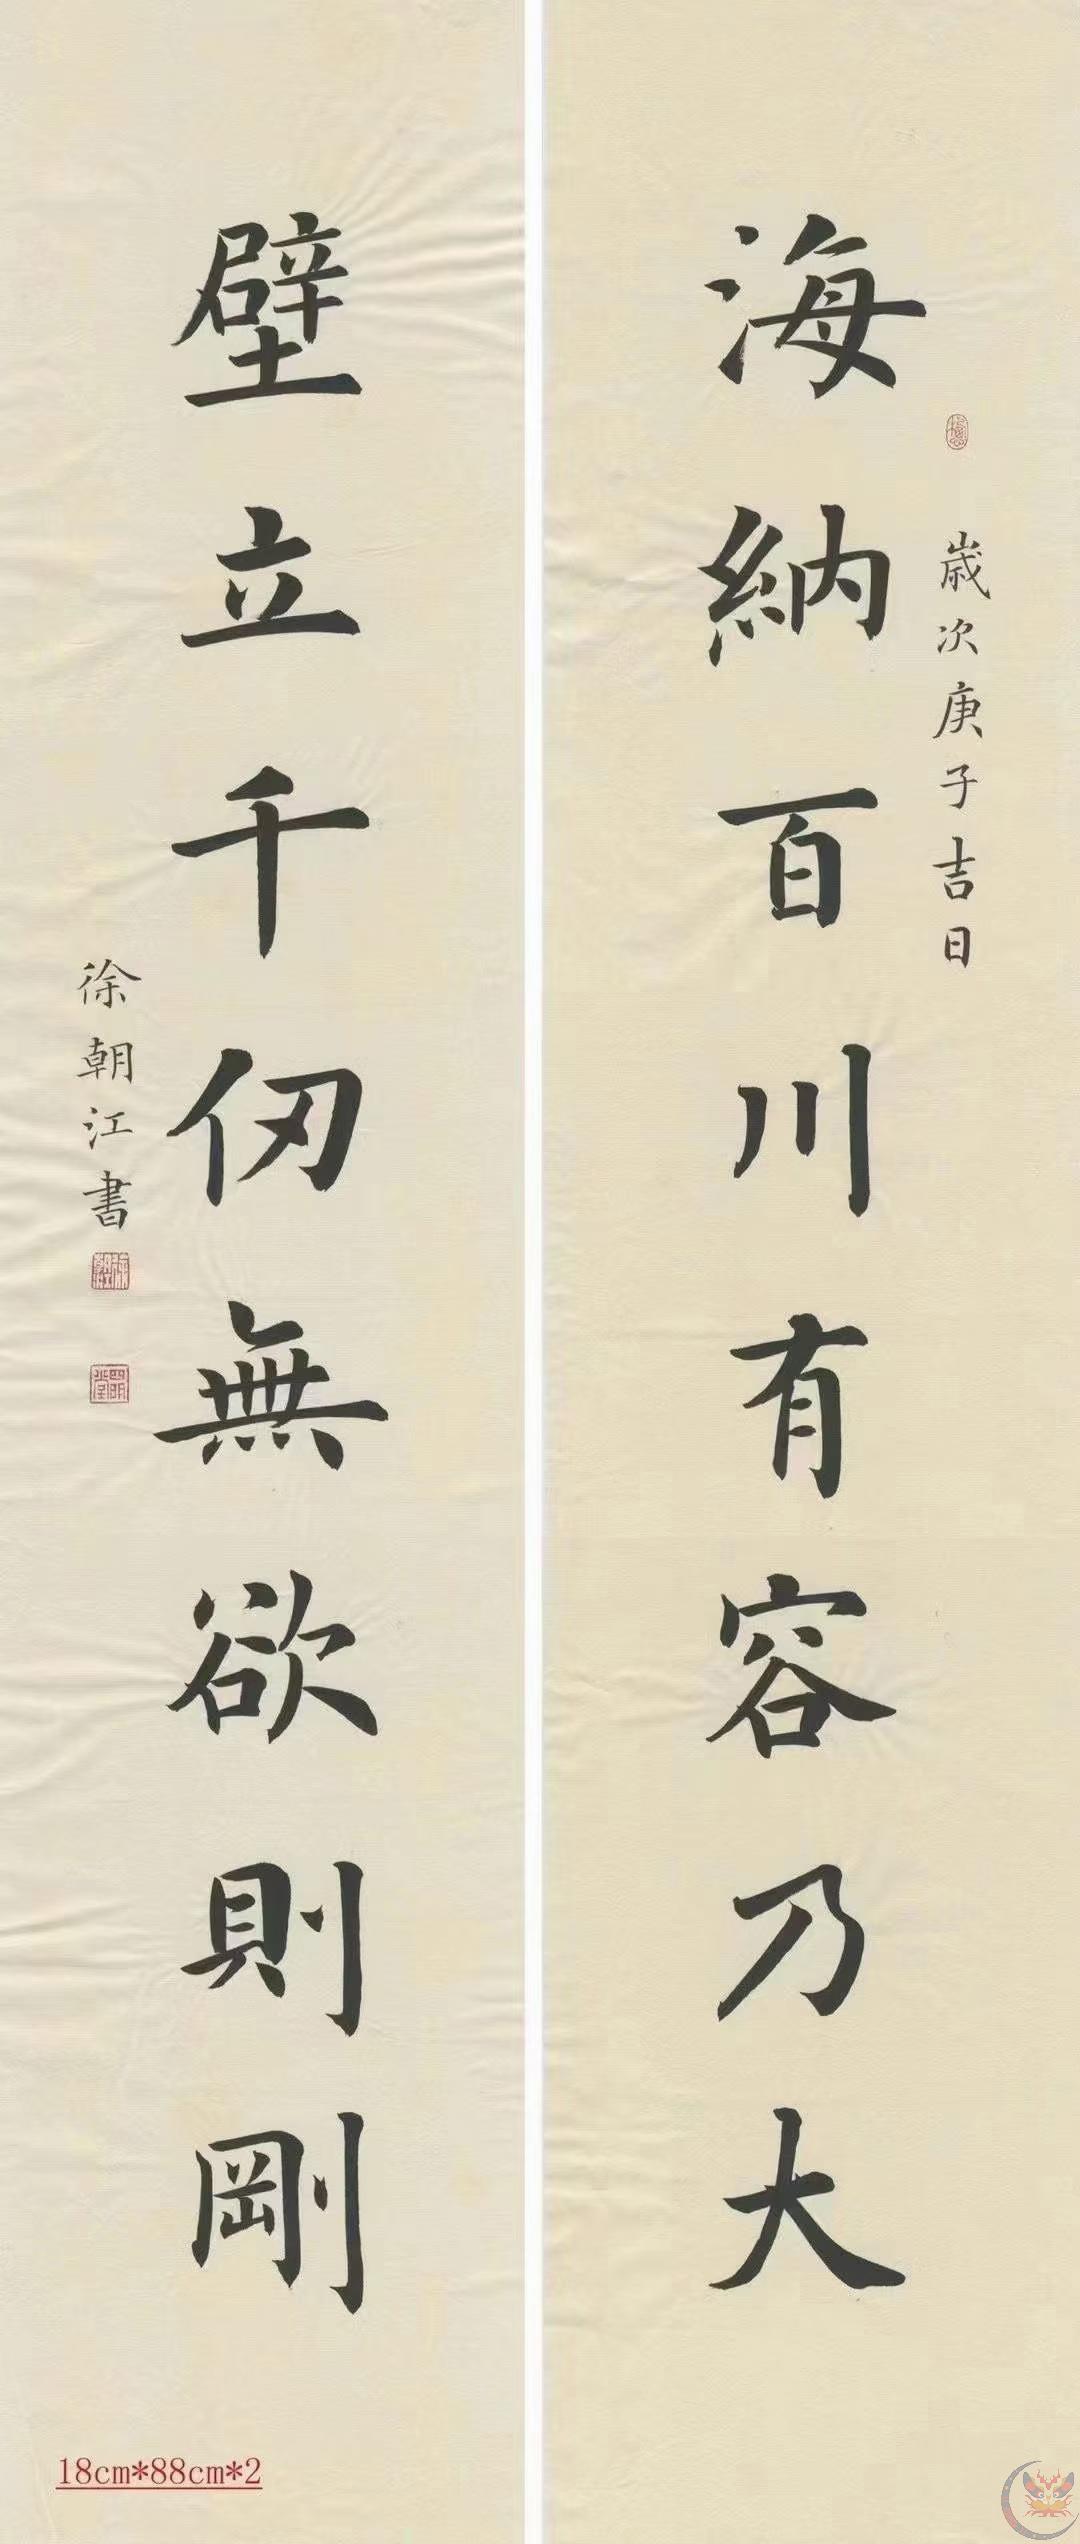 海納百川有容乃大
歲次庚子吉日
壁立千仞無欲則剛
徐朝江書
18cm*88cm*2